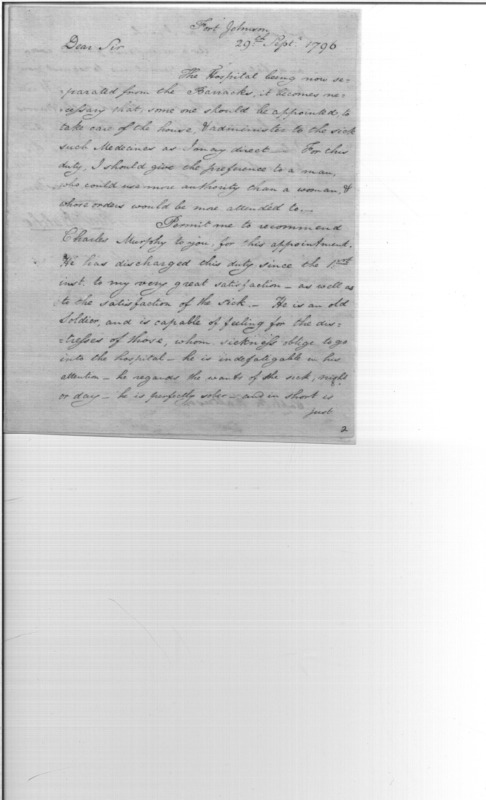 Fort Johnson
29th Septr. 1796
Dear Sir
The Hospital being now se-
-parated from the Barracks, it becomes ne-
cessary that, some one should be appointed, to
take care of the house, & administer to the sick
such Medicines as I may direct — For this
duty, I should give the preference to a man,
who could use more authority than a woman, &
whose orders would be more attended to —
Permit me to recommend
Charles Murphy to you, for this appointment.
He has discharged this duty since the
inst. to my very great satisfaction — as well as
to the satisfaction of the Sick — He is an old
Soldier, and is capable of feeling for the dis-
tresses of those, whom sickness oblige to go
into the hospital — he is indefatigable in his
attention — he regards the wants of the sick, night
or day — he is perfectly sober — and in short is
just
2